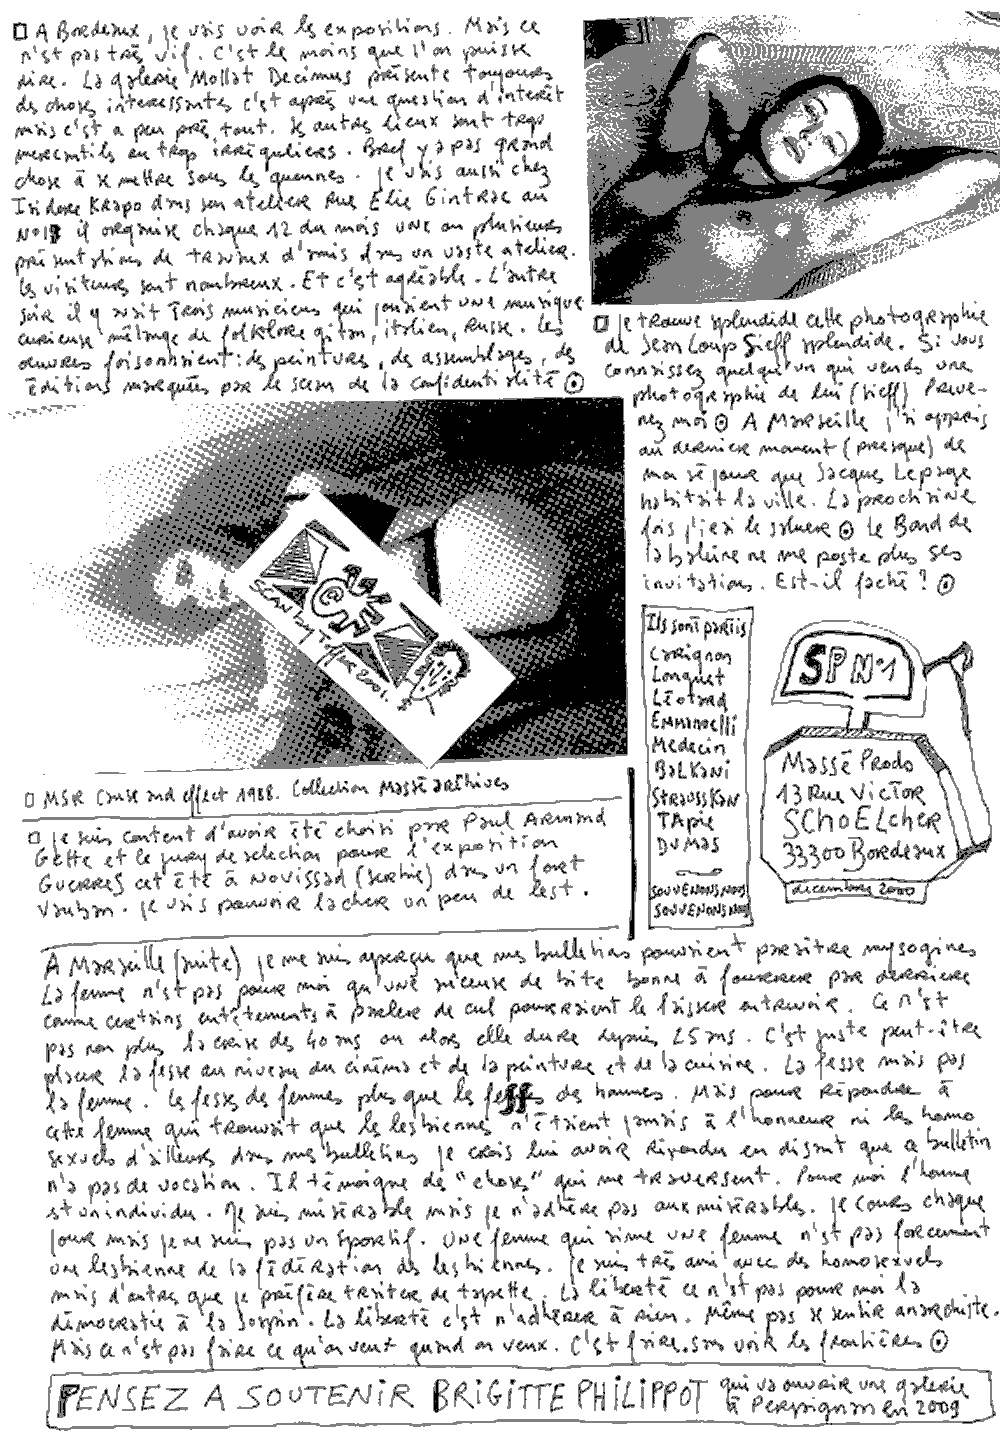 A Bordeaux, je vais voir les expositions. Mais ce
n'est pas très vif. C'est le moins que l'on puisse
dire. La galerie Mollat Decimus présente toujours
des choses interessantes c'est après une question d'intérêt
mais c'est a peu près tout. Les autres lieux sont trop
mercantils ou trop irréguliers. Bref y a pas grand
chose à se mettre sous les quennes. je vais aussi chez
Isidore Krapo dans son ateliere Rue Elie Gintrac au
N°19 il organise chaque 12 du mois une ou plusieurs
présentations de travaux d'amis dans un vaste atelier.
les visiteurs sont nombreux. Et c'est agréable. L'autre
soir il y avait trois musiciens qui jouaient une musique
curieuse mélange de folklore gitan, italien, russe. Les
œuvres foisonnaient: des peintures, des assemblages, des
éditions marquées par le sceau de la confidentialité
je trouve splendide cette photographie
de Jean Loup Sieff splendide. Si vous
connaissez quelqu'un qui vends une
photographie de lui (sieff) Preve-
nez moi A Marseille j'ai appris
au derniere moment (presque) de
mon séjour que Jacques Lepage
habitait la ville. La prochaine
fois j'irai le saluer Le Band de
la baleine ne me poste plus ses
invitations. Est-il faché ?
SCAN by 2001.
Ils sont partis
Carignon
Longuet
Léotard
Emmanuelli
Medecin
BALKANi
STRAUSS KAN
TApie
DuMas
SOUVENONS NOUS
SOUVENONS NOUS
SP N°1
MASSÉ PRODO
13 Rue VICTOR
SCHOELcher
33300 Bordeaux
decembre 2000
MSR Cause and effect 1988. Collection Massé archives
Je suis content d'avoir été choisi par Paul Armand
Gette et le jury de selection pour l'exposition
GUERRES cet été à Novissad (serbie) dans un fort
Vauban. Je vais pouvoir lacher un peu de lest.
A Marseille (suite) je me suis aperçu que mes bulletins pouvaient paraitre mysogines
La femme n'est pas pour moi qu'une suceuse de bite bonne à fourrer par derriere
comme certains entêtements à parler de cul pourraient le laisser entrevoir. Ce n'est
pas non plus la crise des 40 ans ou alors elle dure depuis 25 ans. C'est juste peut-être
placer la fesse au niveau du cinéma et de la peinture et de la cuisine. La fesse mais pas
la femme. Les fesses de femmes plus que les fesses des hommes. Mais pour répondre à
cette femme qui trouvait que les lesbiennes n'étaient jamais à l'honneur ni les homo
sexuels d'ailleurs dans mes bulletins je crois lui avoir répondu en disant que ce bulletin
n'a pas de vocation. Il témoigne de "choses" qui me traversent. Pour moi l'homme
est un individu. Je suis misérable mais je n'adhère pas aux misérables. je cours chaque
jour mais je ne suis pas un sportif. Une femme qui aime une femme n'est pas forcement
une lesbienne de la fédération des lesbiennes. Je suis très ami avec des homosexuels
mais d'autres que je préfère traiter de tapette. La liberté ce n'est pas pour moi la
démocratie à la Jospin. La liberté c'est n'adhérer à rien. Même pas se sentir anarchiste.
Mais ce n'est pas faire ce qu'on veut quand on veux. C'est faire sans voir les frontières
PENSEZ A SOUTENIR BRIGITTE PHILIPPOT qui va ouvrir une galerie
à Perpignan en 2009